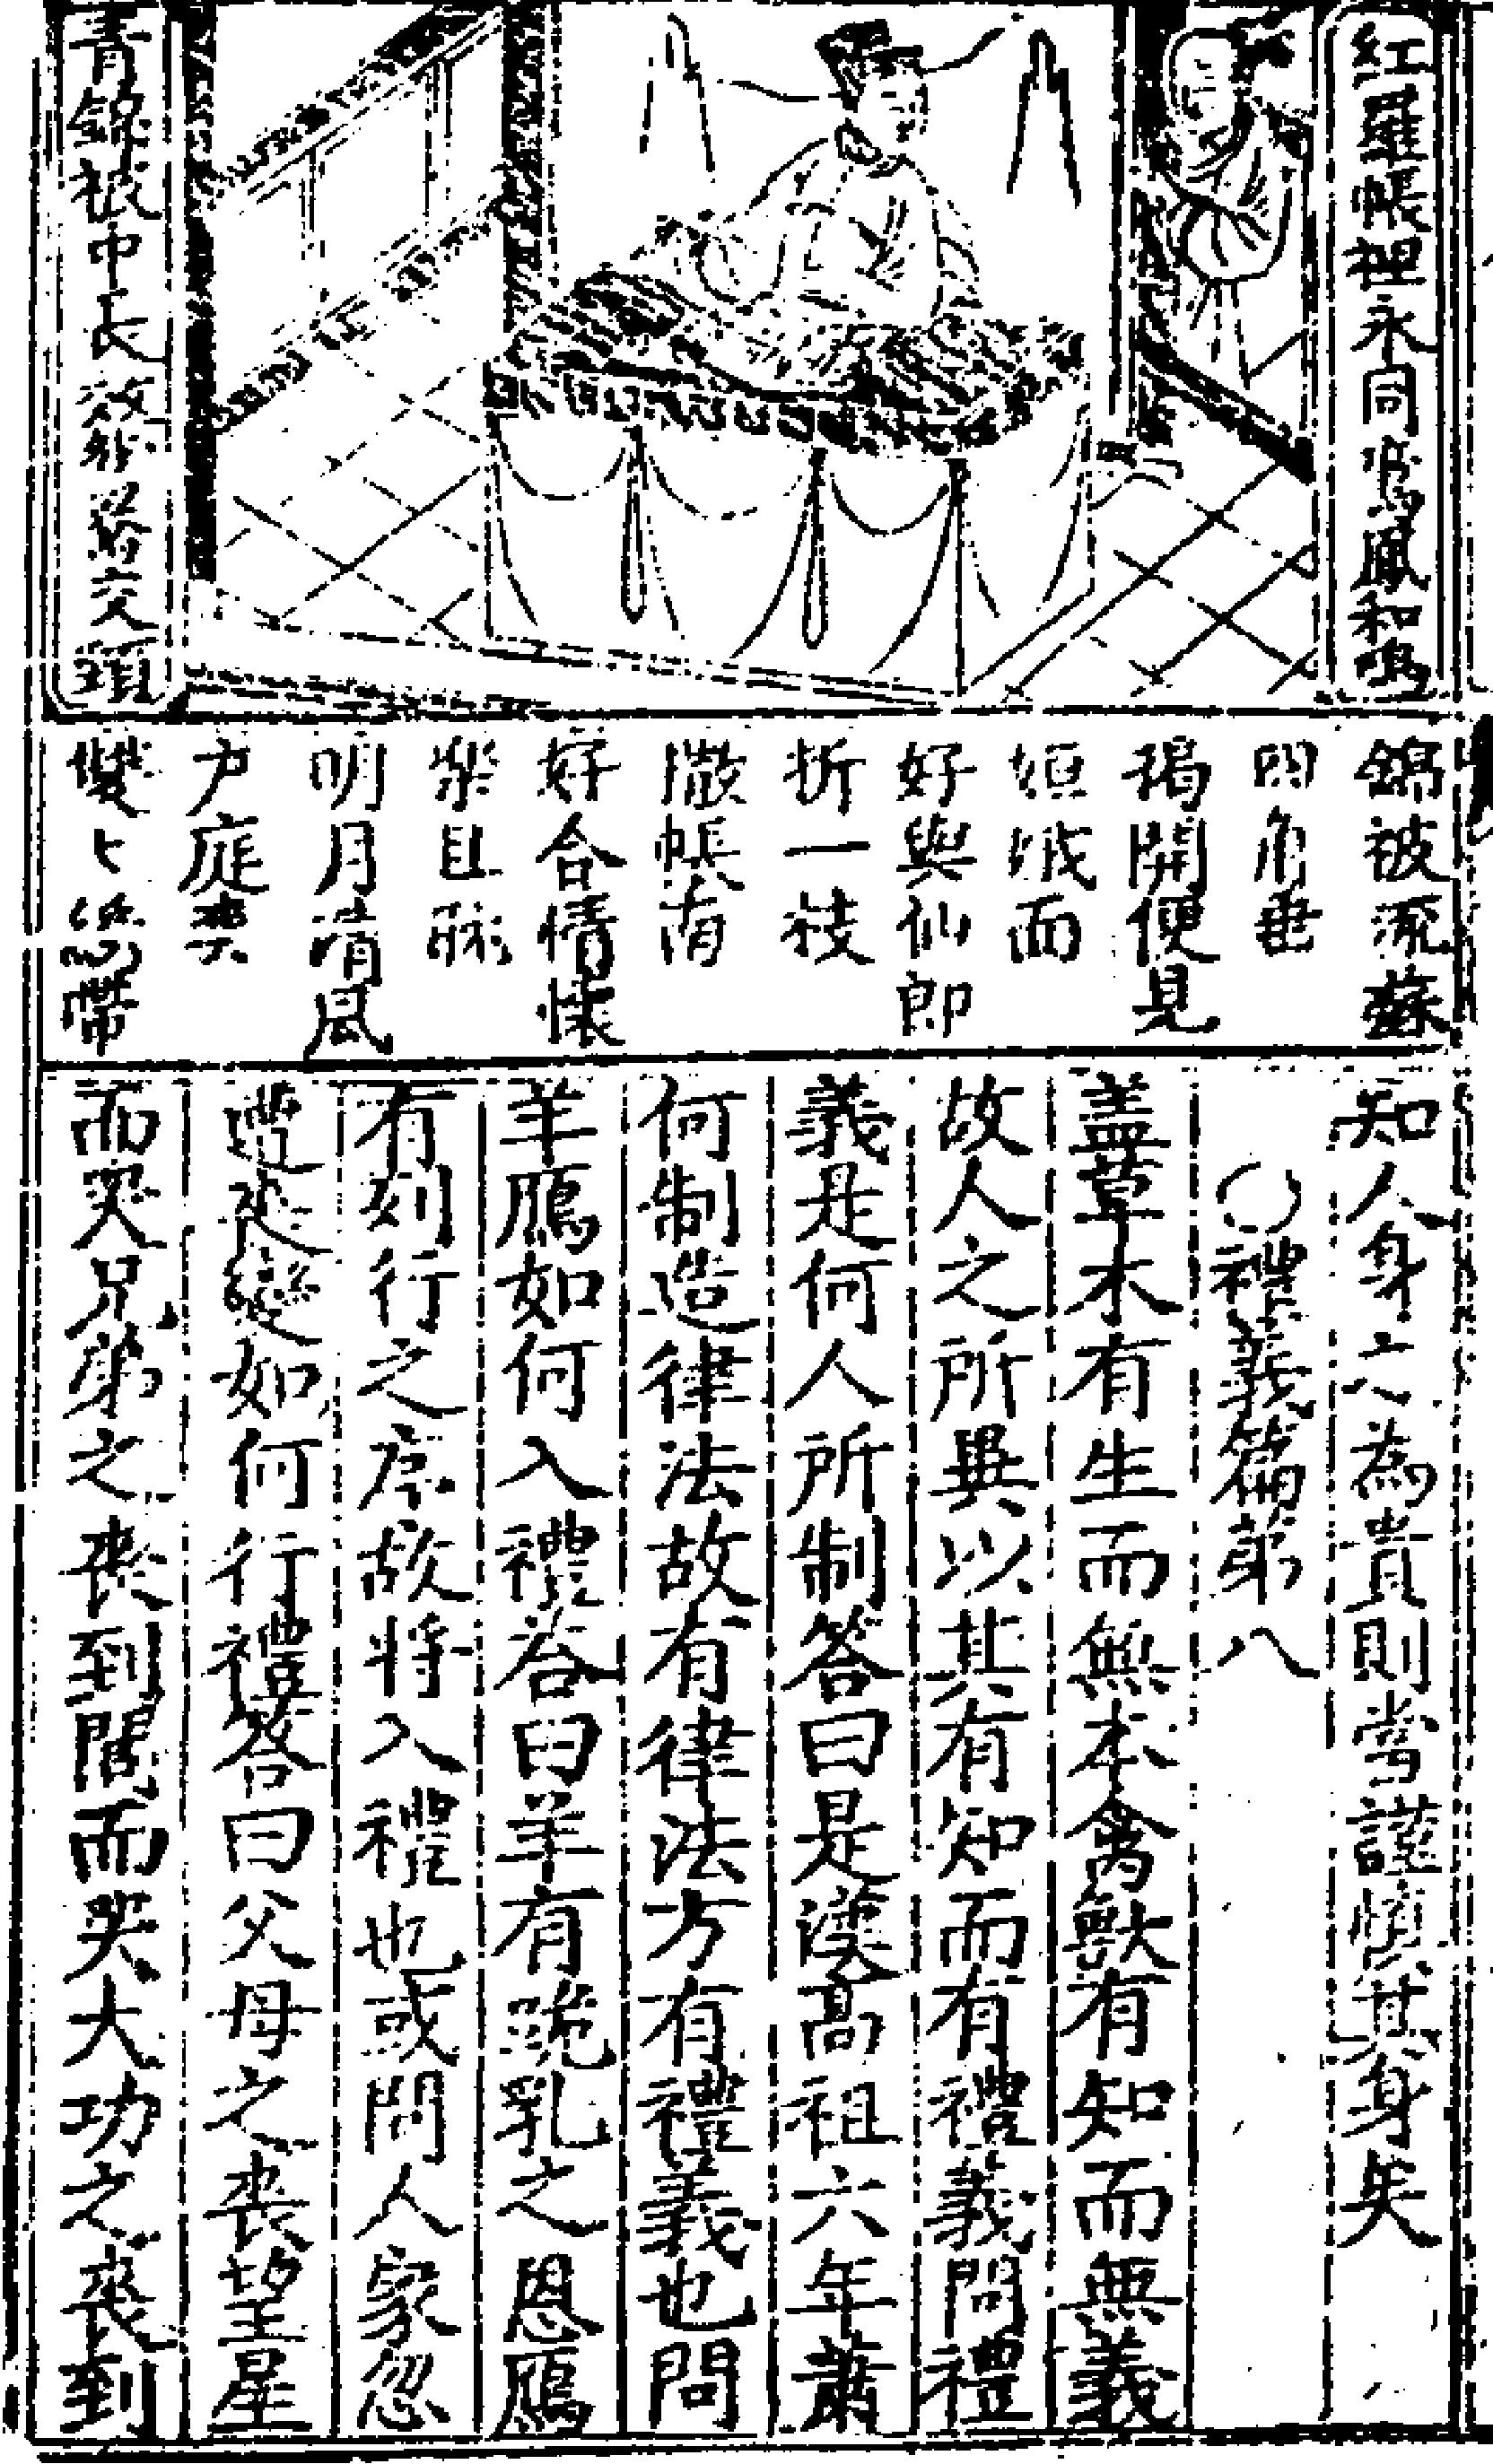 紅羅帳裡永同鸞鳳和鳴
青錦被中長效鴛鴦交頸
錦被流蘇
四角垂
揭開便見
姮娥面
好與仙郎
折一枝
撒帳南
好合情懷
樂且耽
明月清風
户庭爽
雙〻戀帶
知人身之為貴則當謹慎其身矣
〇禮義篇第八
盖草木有生而無本禽獸有知而無義
故人之所異以其有知而有禮義問禮
義是何人所制答曰是漢高祖六年蕭
何制造律法故有律法方有禮義也問
羊鴈如何入禮答曰羊有跪乳之恩鴈
有列行之序故將入禮也或問人家忽
遭喪變如何行禮答曰父母之喪望星
而哭兄弟之喪到閭而哭大功之喪到